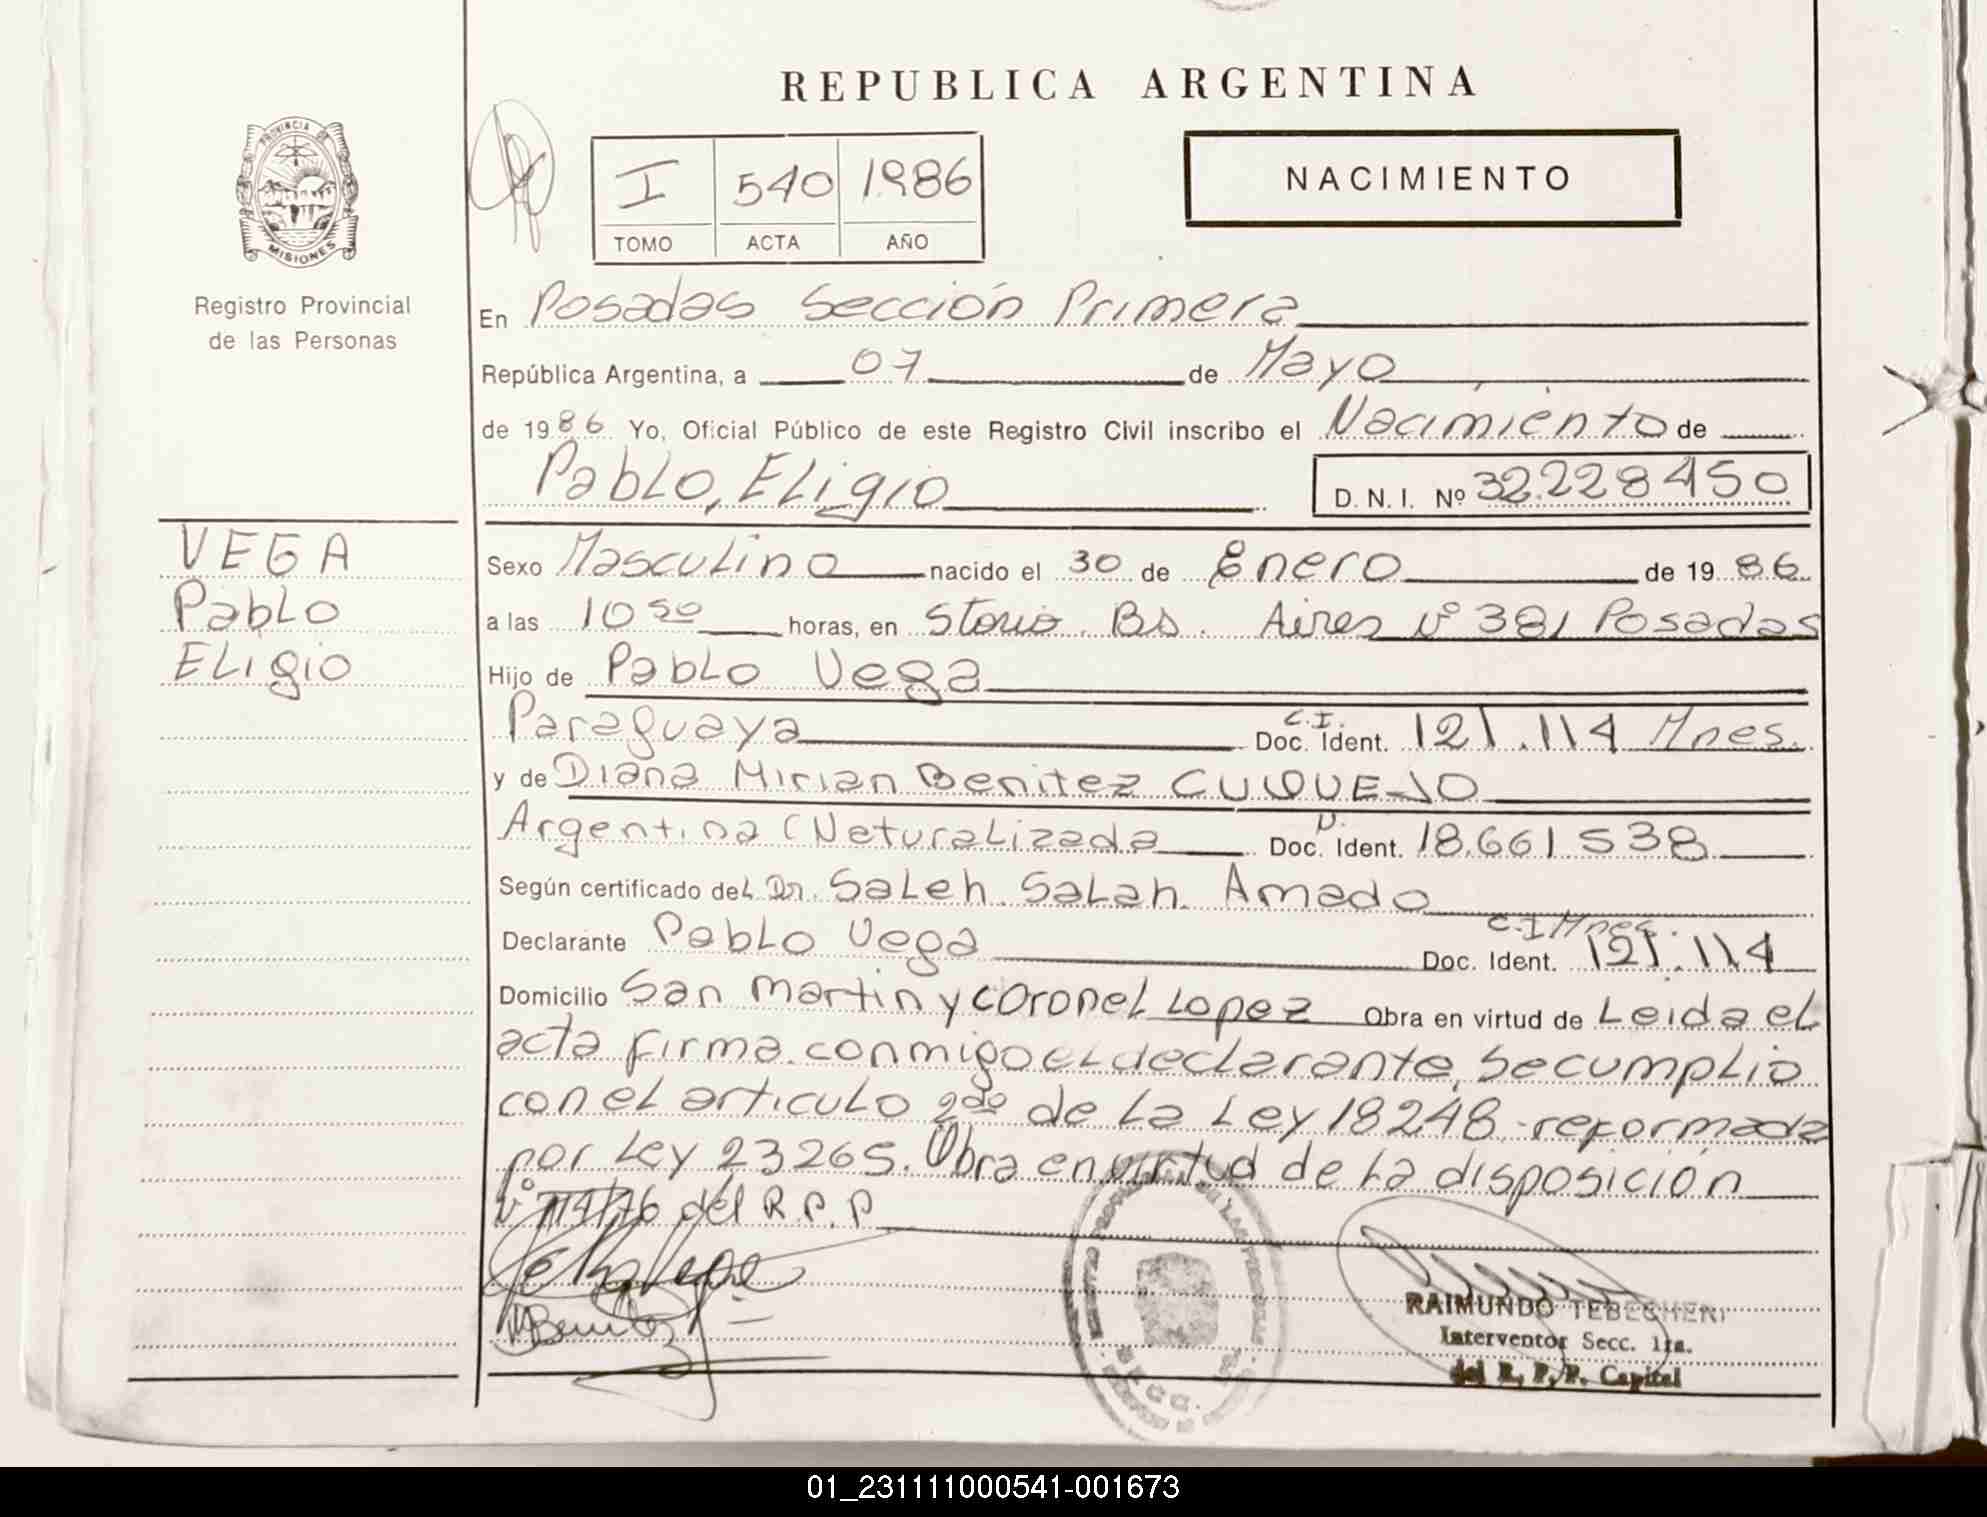 REPUBLICA ARGENTINA
PROVINCIA DE
MISIONES
Registro Provincial
de las Personas
I 540 1986
TOMO ACTA AÑO
NACIMIENTO
En Posadas Sección Primera
República Argentina, a 07 de Mayo
de 1986 Yo, Oficial Público de este Registro Civil inscribo el Nacimiento de
Pablo, Eligio D. N. I. Nº 32.228450
VEGA
Pablo
Eligio
Sexo Masculino nacido el 30 de Enero de 1986
a las 10 50 horas, en Bs. Aires Nº 381 Posadas
Hijo de Pablo Vega
Paraguaya C.I. Doc. Ident. 121.114 Mnes.
y de Diana Mirian Benitez CUQUEJO
Argentina (Neturalizada Doc. Ident. 18.661538
Según certificado del Dr. Saleh Salah Amado
Declarante Pablo Vega C.I Mnes. Doc. Ident. 121.114
Domicilio San Martin y Coronel Lopez Obra en virtud de Leida el
acta firma conmigo el declarante, Se cumplio
con el articulo 2do de La Ley 18248 reformada
por Ley 23265. Obra en virtud de La disposición
del R.P.P
Benitez
RAIMUNDO TEBEGHENI
Interventor Secc. 1ra.
del R. P. P. Capital
01_231111000541-001673